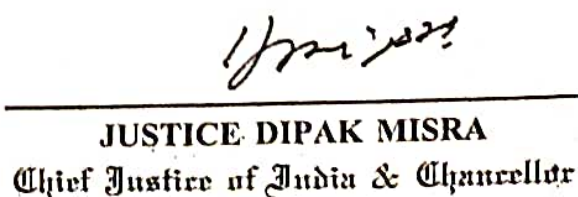 JUSTICE DIPAK MISRA
Chief Justice of India & Chancellor